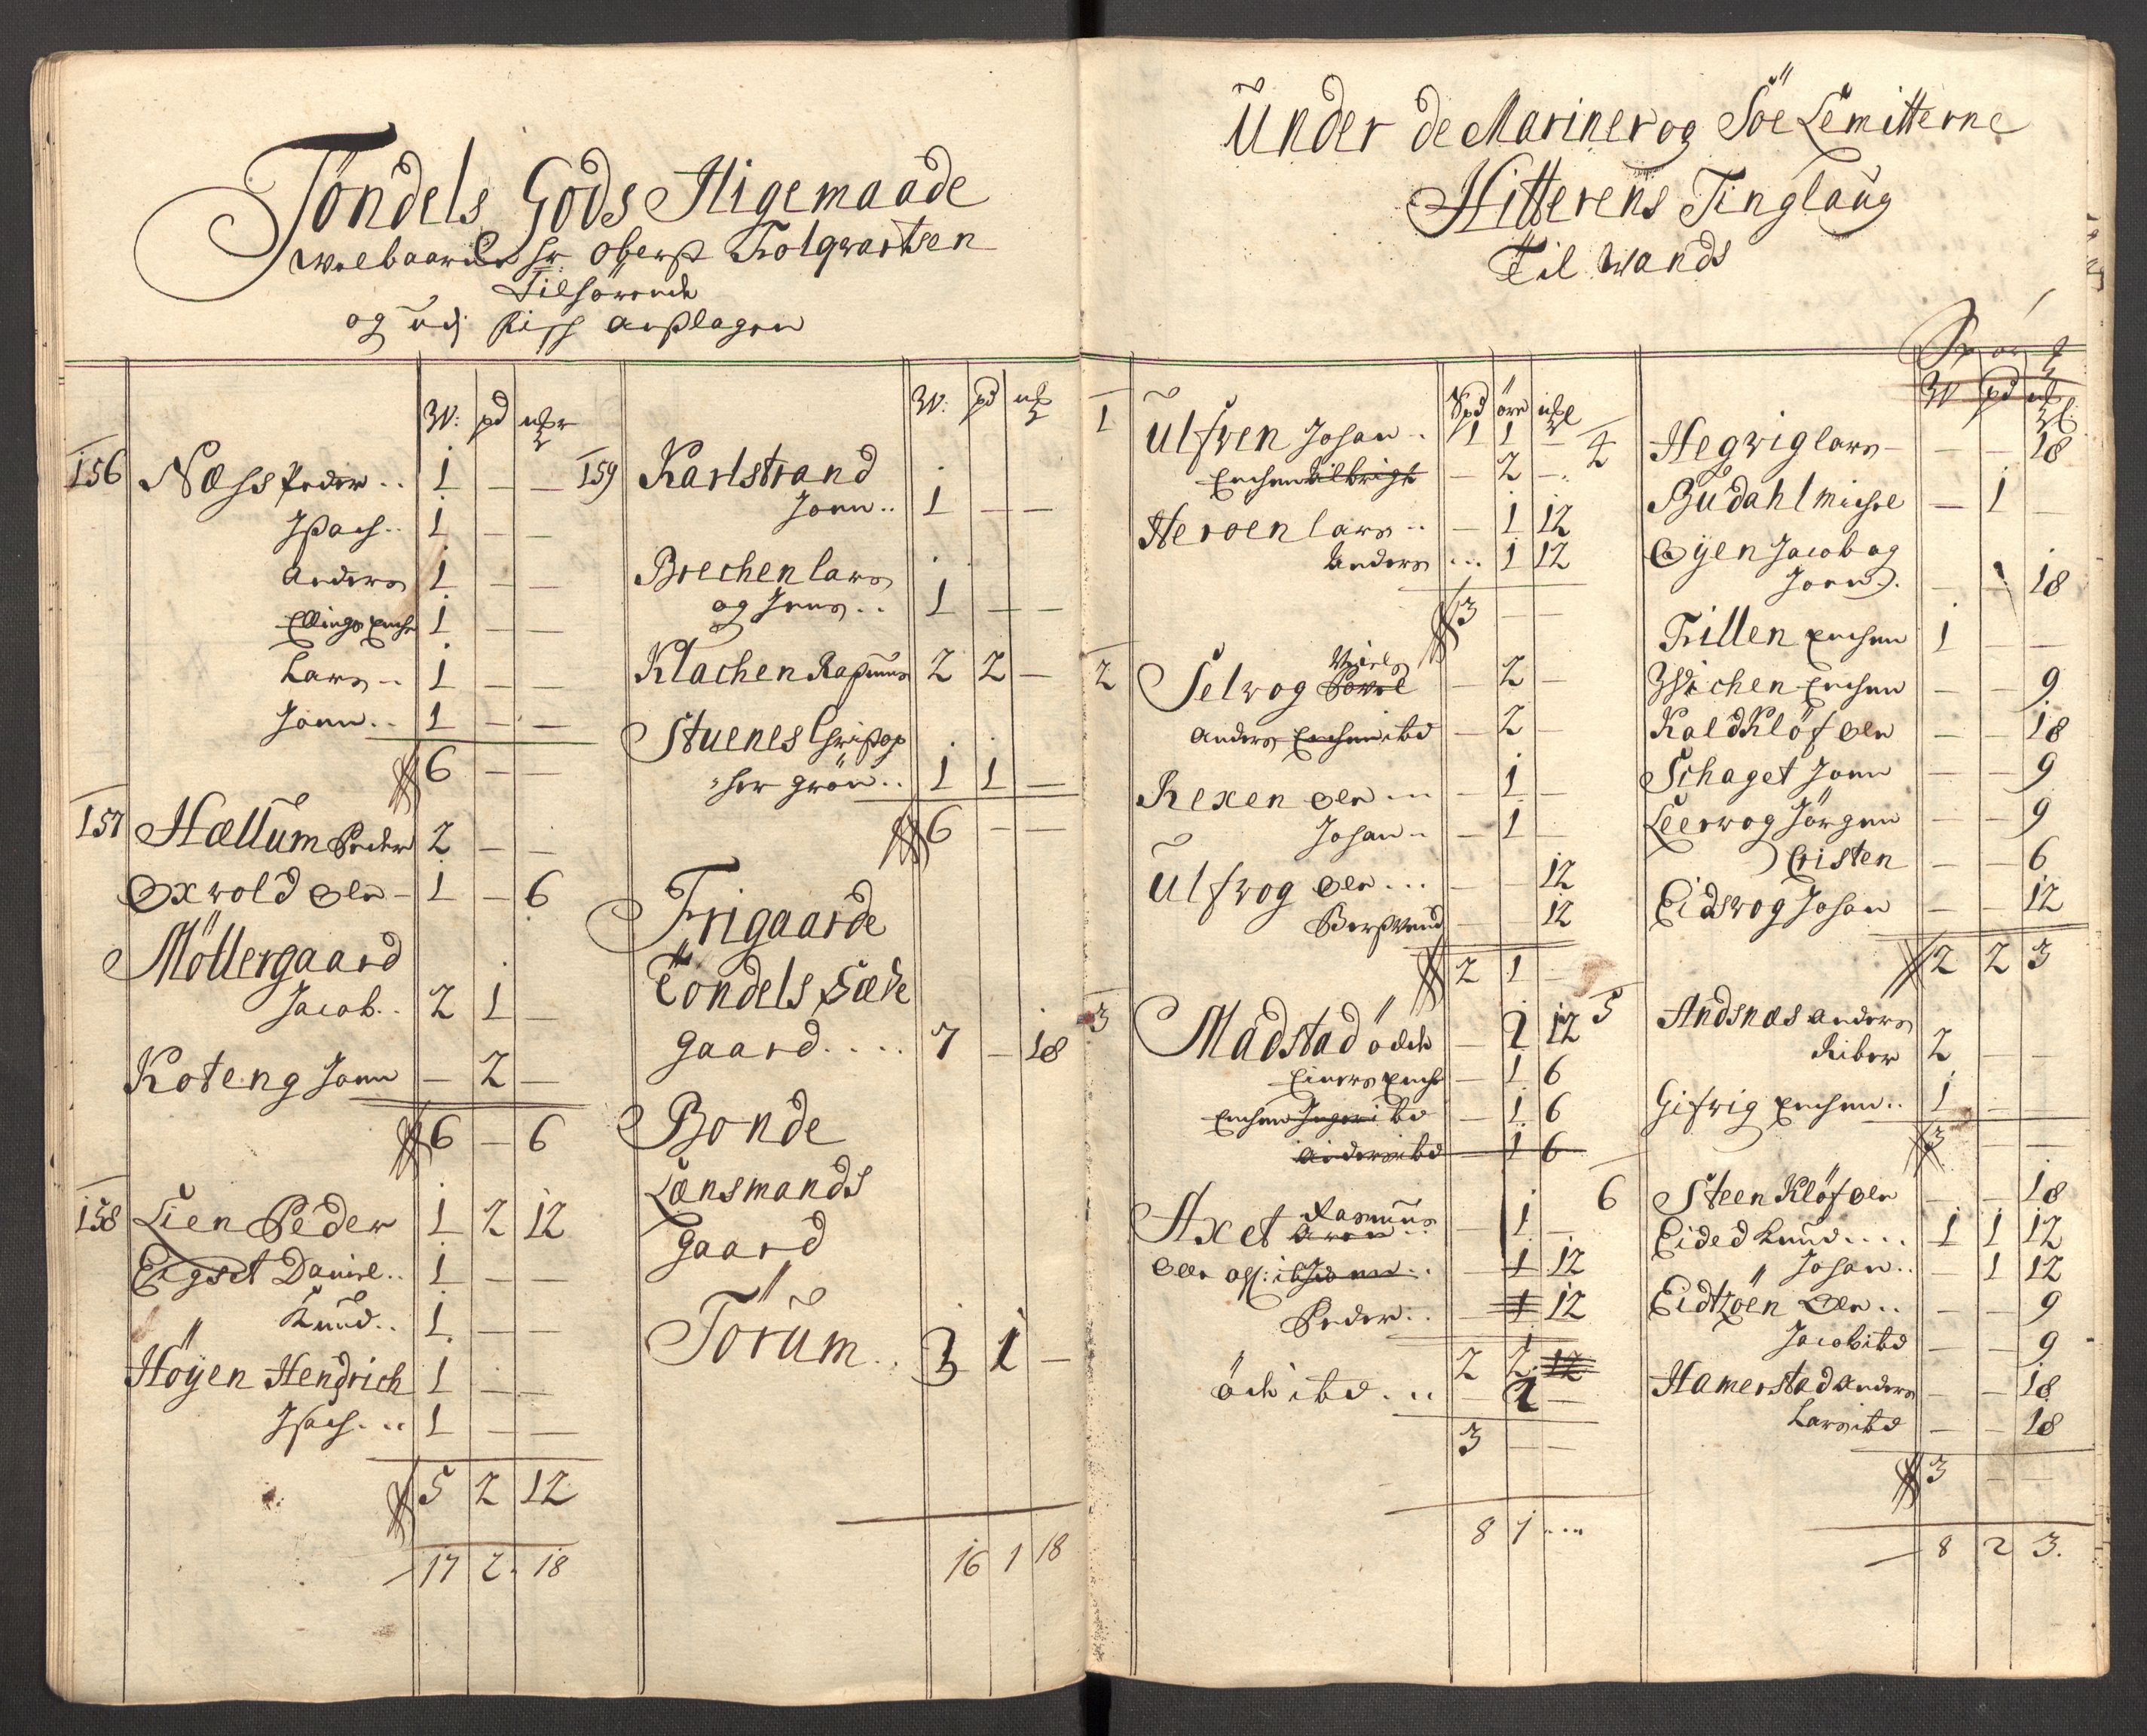 Töndels Gods Iligemaade
welbaarne hr: Oberst Kolqvartsen
Tilhörende
og udj Anslagen
W: pd
156 Næss Peder .. 1 — —
Isach .. 1 — —
Anders 1 — —
Ellings Enche 1 — —
Lars .. 1 — —
Joen .. 1 — —
6 — —
157 Hællum Peder 2 — —
Oxvold Ole — 1 — 6
Möllergaard
Jacob .. 2 1 —
Koteng Joen — 2 —
6 — 6
158 Lien Peder 1 2 12
Eigset Daniel .. 1 — —
" Knud .. 1 — —
Höyen Hendrich 1 — —
Isach ... 1 — —
5 2 12
17 2 18
W: pd
159 Karlstrand
Joen .. 1 — —
Brechen Lars
og Jens .. 1 — —
Klachen Rasmus 2 2 —
Stuenes Christop
her Grön .. 1 1 —
6 — —
Frigaarde
Töndels Sæde
gaard .... 7 — 18
Bonde
Lænsmands
Gaard
Torum .. 3 1 —
16 1 18
Under de Mariner og Söe Lemitterne
Hitterens Tinglaug
Til Wands
Spd öre
1 Ulfven Johan .. 1 1 —
Enchen Ulbrigt — 2 —
Heroen Lars .. — 1 12
Anders ... 1 12
3 — —
2 Selvog Niels Povel — 2 —
Anders Enchen ibd — 2 —
Rexen Ole ... — 1 —
Johan .. — 1 —
Ulfvog Ole ... — — 12
12
2 1 —
3 Madstad — 2 12
Einers Enche — 1 6
Enchen ibd — 1 6
Anders ibd — 1 6
Axet Rasmus — 1 —
Ole 1 12
Peder .. 1 12
2 2 12
ibd ... — 2 —
3 — —
8 1 ...
W pd
4 Hegvig Lars — — — 18
Budahl Michel — 1 —
Öyen Jacob og
Joen . — — 18
Killen Enchen 1 — —
Wichen Enchen — — 9
Kaldklöf Ole — — 18
Schaget Joen — — 9
Leervog Jörgen — — 9
Cristen — — 6
Eidsvog Johan — — 12
2 2 3
5 Andsnæs Anders
Riber 2 — —
Gifvig Enchen .. 1 —
3 — —
6 Steen Klöf Ole — — 18
Eided Knud .... 1 1 12
" Johan .. — 1 12
Eidtzöen Ole .. — — 9
Jacob ibd — — 9
Hamerstad Anders — — 18
Lars ibd — — 18
3 — —
8 2 3.